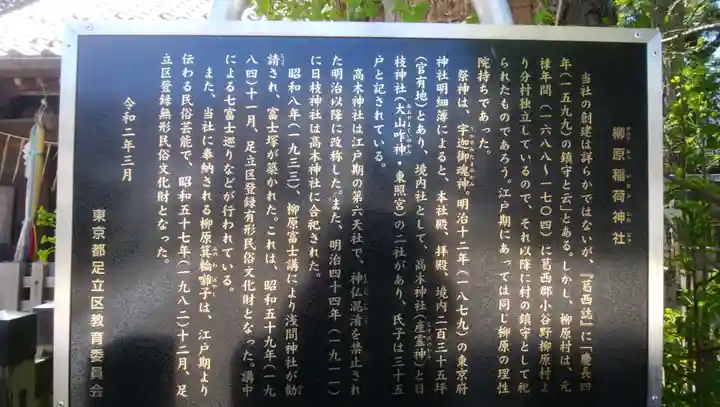 柳原稲荷神社
やなぎはらいなりじんじゃ
当社の創建は詳らかではないが、『葛西誌』に「慶長四
年(一五九九)の鎮守と云」とある。しかし、柳原村は、元
禄年間(一六八八〜一七〇四)に葛西郡小谷野柳原村よ
り分村独立しているので、それ以降に村の鎮守として祀
られたものであろう。江戸期にあっては同じ柳原の理性
院持ちであった。
祭神は、宇迦御魂神。明治十二年(一八七九)の東京府
神社明細簿によると、本社殿、拝殿、境内二百三十五坪
(官有地)とあり、境内社として、高木神社(産霊神)と日
枝神社(大山咋神・東照宮)の二社があり、氏子は三十五
戸と記されている。
高木神社は江戸期の第六天社で、神仏混淆を禁止され
た明治以降に改称した。また、明治四十四年(一九一一)
に日枝神社は高木神社に合祀された。
昭和八年(一九三三)、柳原富士講により浅間神社が勧
請され、富士塚が築かれた。これは、昭和五十九年(一九
八四)十一月、足立区登録有形民俗文化財となった。講中
による七富士巡りなどが行われている。
また、当社に奉納される柳原箕輪囃子は、江戸期より
伝わる民俗芸能で、昭和五十七年(一九八二)十二月、足
立区登録無形民俗文化財となった。
令和二年三月
東京都足立区教育委員会